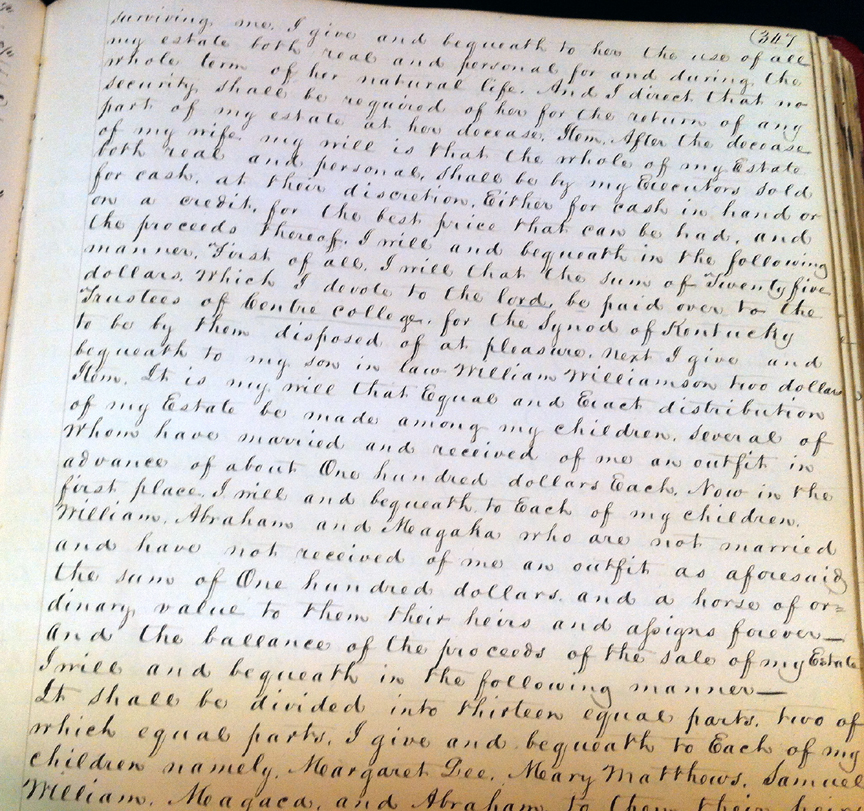 (347
surviving me. I give and bequeath to her the use of all
my estate both real and personal for and during the
whole term of her natural life. And I direct that no
security shall be required of her for the return of any
part of my estate at her decease. Item. After the decease
of my wife my will is that the whole of my Estate
both real and personal, shall be by my Executors sold
for cash, at their discretion, Either for cash in hand or
on a credit, for the best price that can be had, and
the proceeds thereof. I will and bequeath in the following
manner. First of all, I will that the sum of Twenty five
dollars, which I devote to the lord, be paid over to the
Trustees of Centre college, for the Synod of Kentucky
to be by them disposed of at pleasure, next I give and
bequeath to my son in law William Williamson two dollars
Item. It is my will that Equal and Exact distribution
of my Estate be made among my children, several of
whom have married and received of me an outfit in
advance of about One hundred dollars Each, Now in the
first place, I will and bequeath to Each of my children,
William, Abraham and Meagaha who are not married
and have not received of me an outfit as aforesaid
the sum of One hundred dollars and a horse of or=
dinary value to them their heirs and assigns forever—
And the ballance of the proceeds of the sale of my Estate
I will and bequeath in the following manner—
It shall be divided into thirteen equal parts, two of
which equal parts, I give and bequeath to Each of my
children namely, Margaret Lee, Mary Matthews, Samuel
William, Meagaca, and Abraham to them their heirs